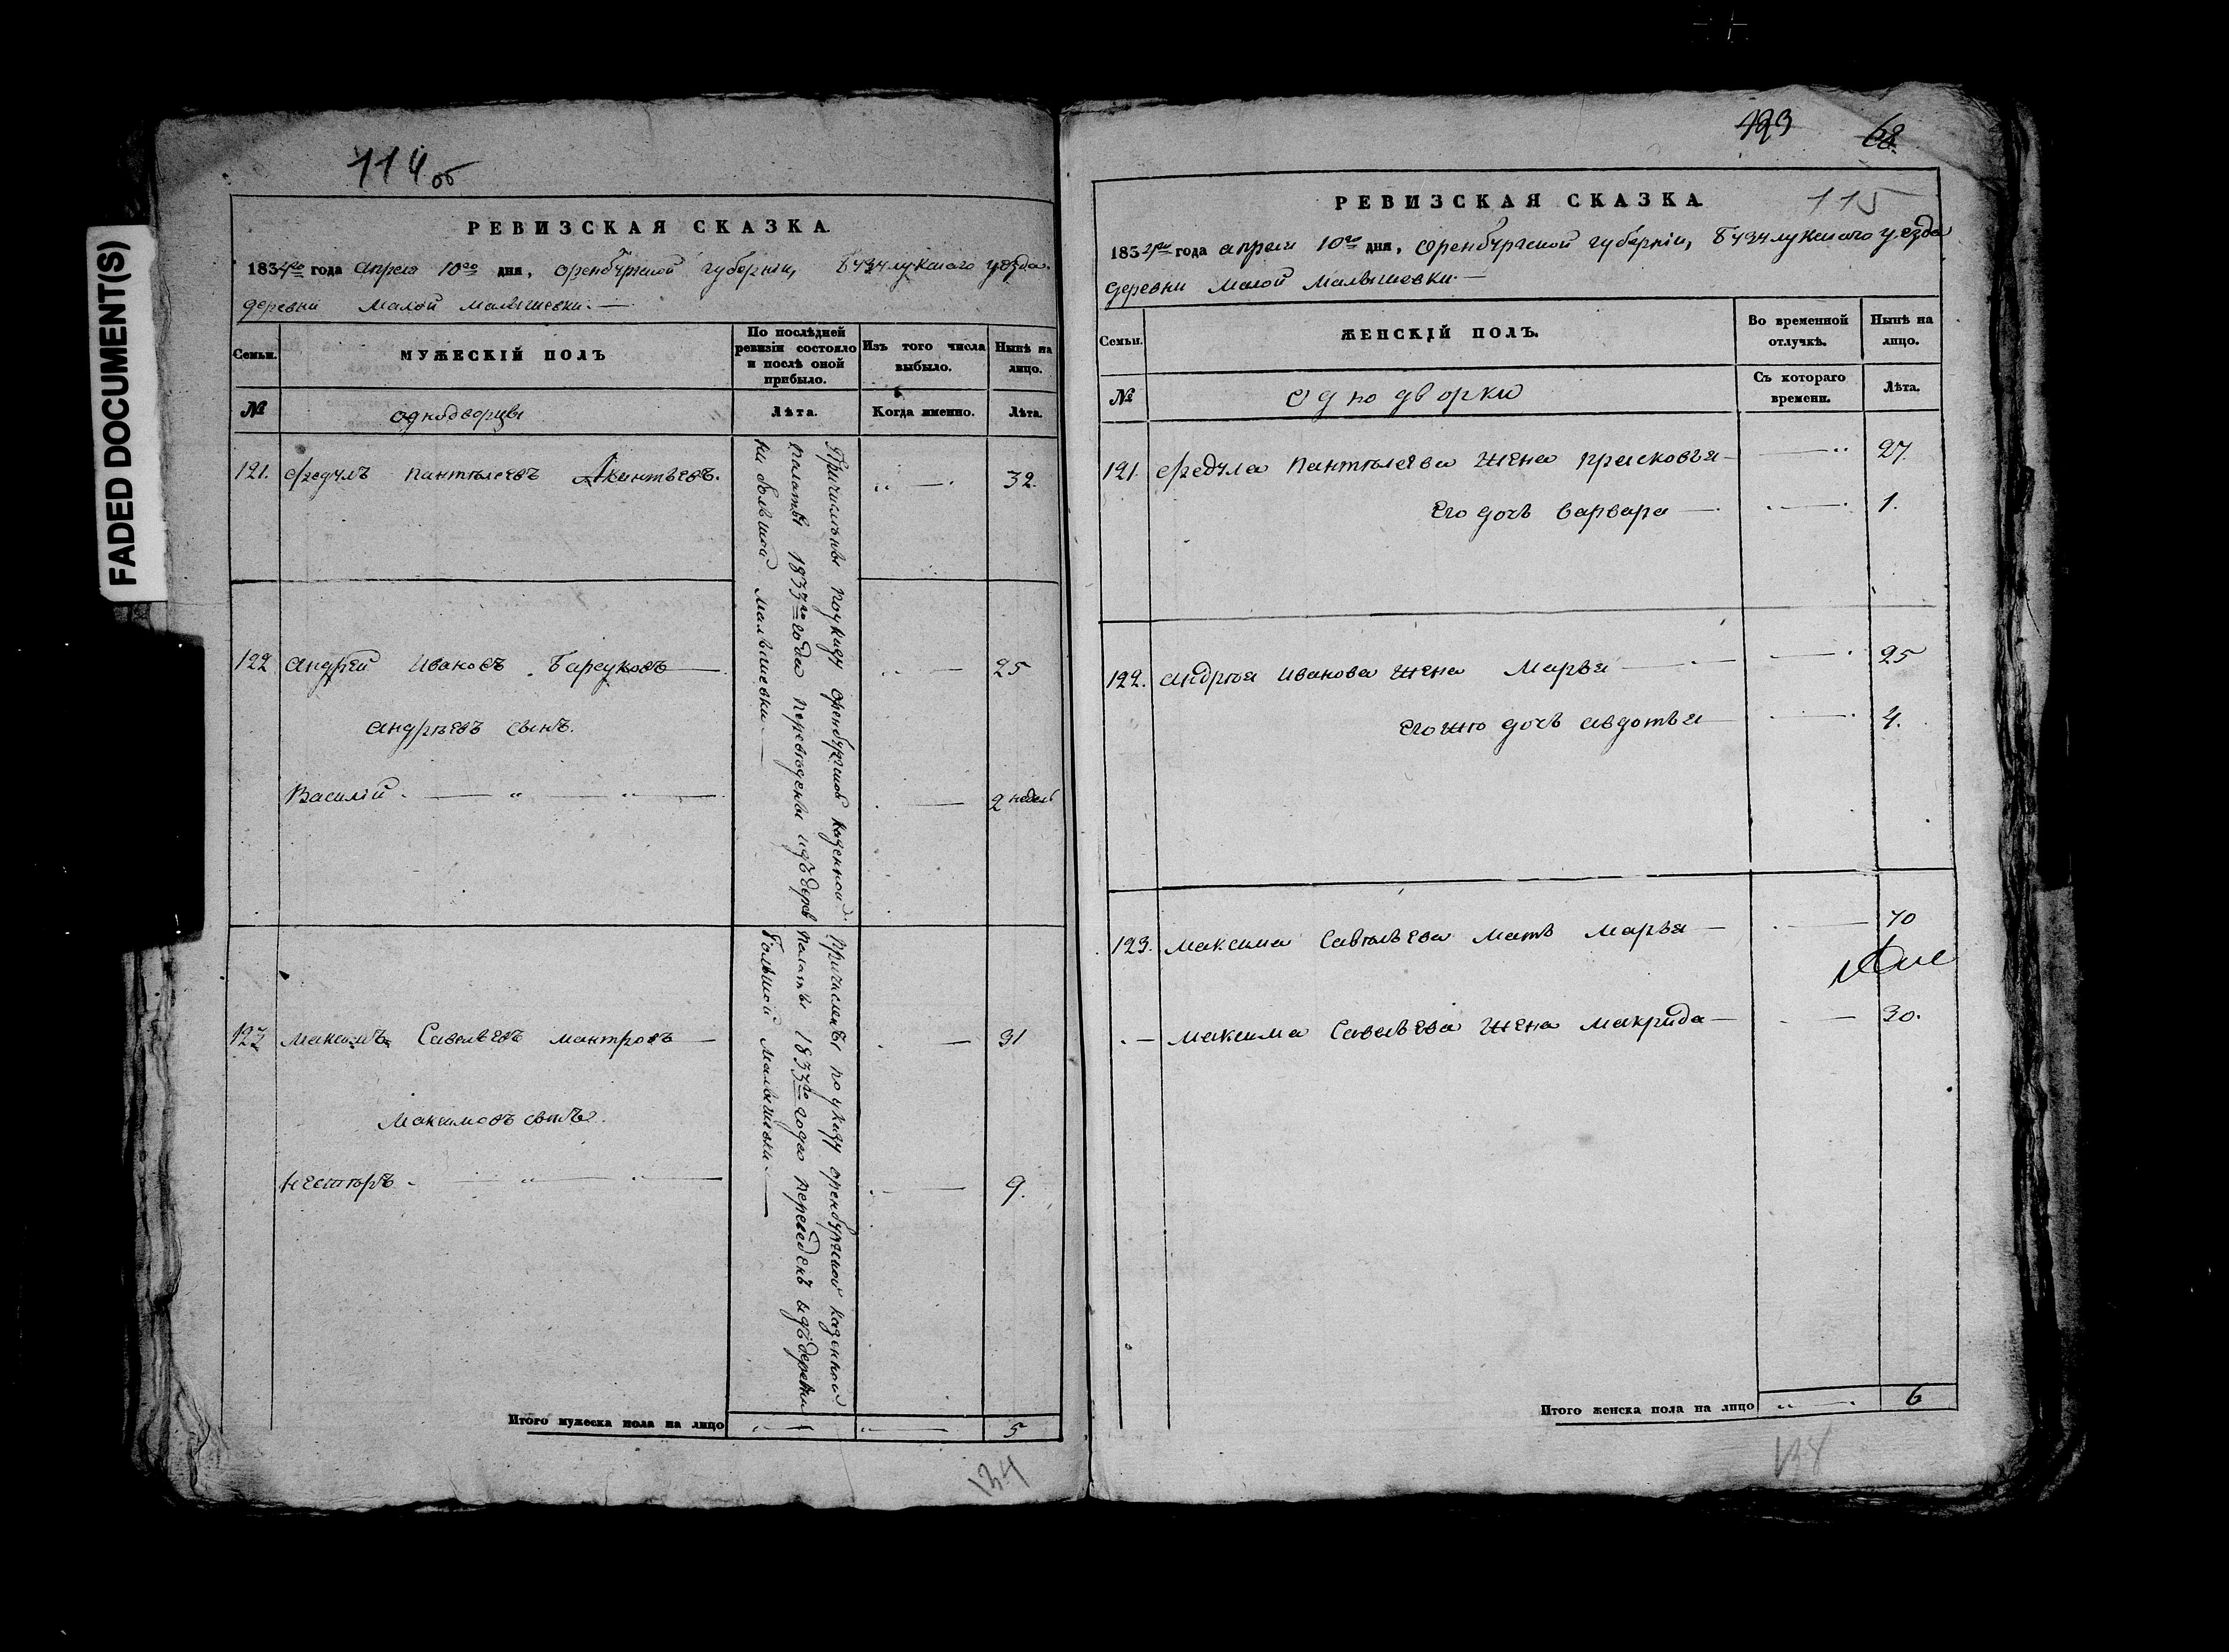 FADED DOCUMENT(S)
114 об
РЕВИЗСКАЯ СКАЗКА
1834го года апреля 10го дня, Оренбургской губернии, Бузулукскаго уезда.
деревни Малой Малышевки.
Семьи.
МУЖЕСКІЙ ПОЛЪ
По послѣдней ревизіи состояло и послѣ оной прибыло.
Изъ того числа выбыло.
Нынѣ на лицо.
№
однодворцы
Лѣта.
Когда именно.
Лѣта.
121. Федулъ Пантелеевъ Акинтьевъ. 32.
122 Андрей Ивановъ Барсуковъ 25
Андреевъ сынъ.
Василій 2 недель
123 Максимъ Савельевъ Мантровъ 31
Максимовъ сынъ.
Несторъ 9.
Причислены по указу Оренбургской казенной
палаты 1833го года переведены изъ дерев
ни Большой Малышевки
Причисленъ по указу Оренбургской казенной
палаты 1833го года переведенъ изъ деревни
Большой Малышевки
Итого мужеска пола на лицо 5
134
123
68.
115
РЕВИЗСКАЯ СКАЗКА
1834го года апреля 10го дня, Оренбургской губерніи, Бузулукскаго уезда
деревни Малой Малышевки
Семьи.
ЖЕНСКІЙ ПОЛЪ.
Во временной отлучкѣ.
Нынѣ на лицо.
№
Однодворки
Съ котораго времени.
Лѣта.
121. Федула Пантелеева жена Прасковья 27.
Его дочь Варвара 1.
122. Андрея Иванова жена Марья 25
Его жо дочь Авдотья 4.
123. Максима Савельева мать Марья 70
Максима Савельева жена Макрида 30.
Итого женска пола на лицо 6
138